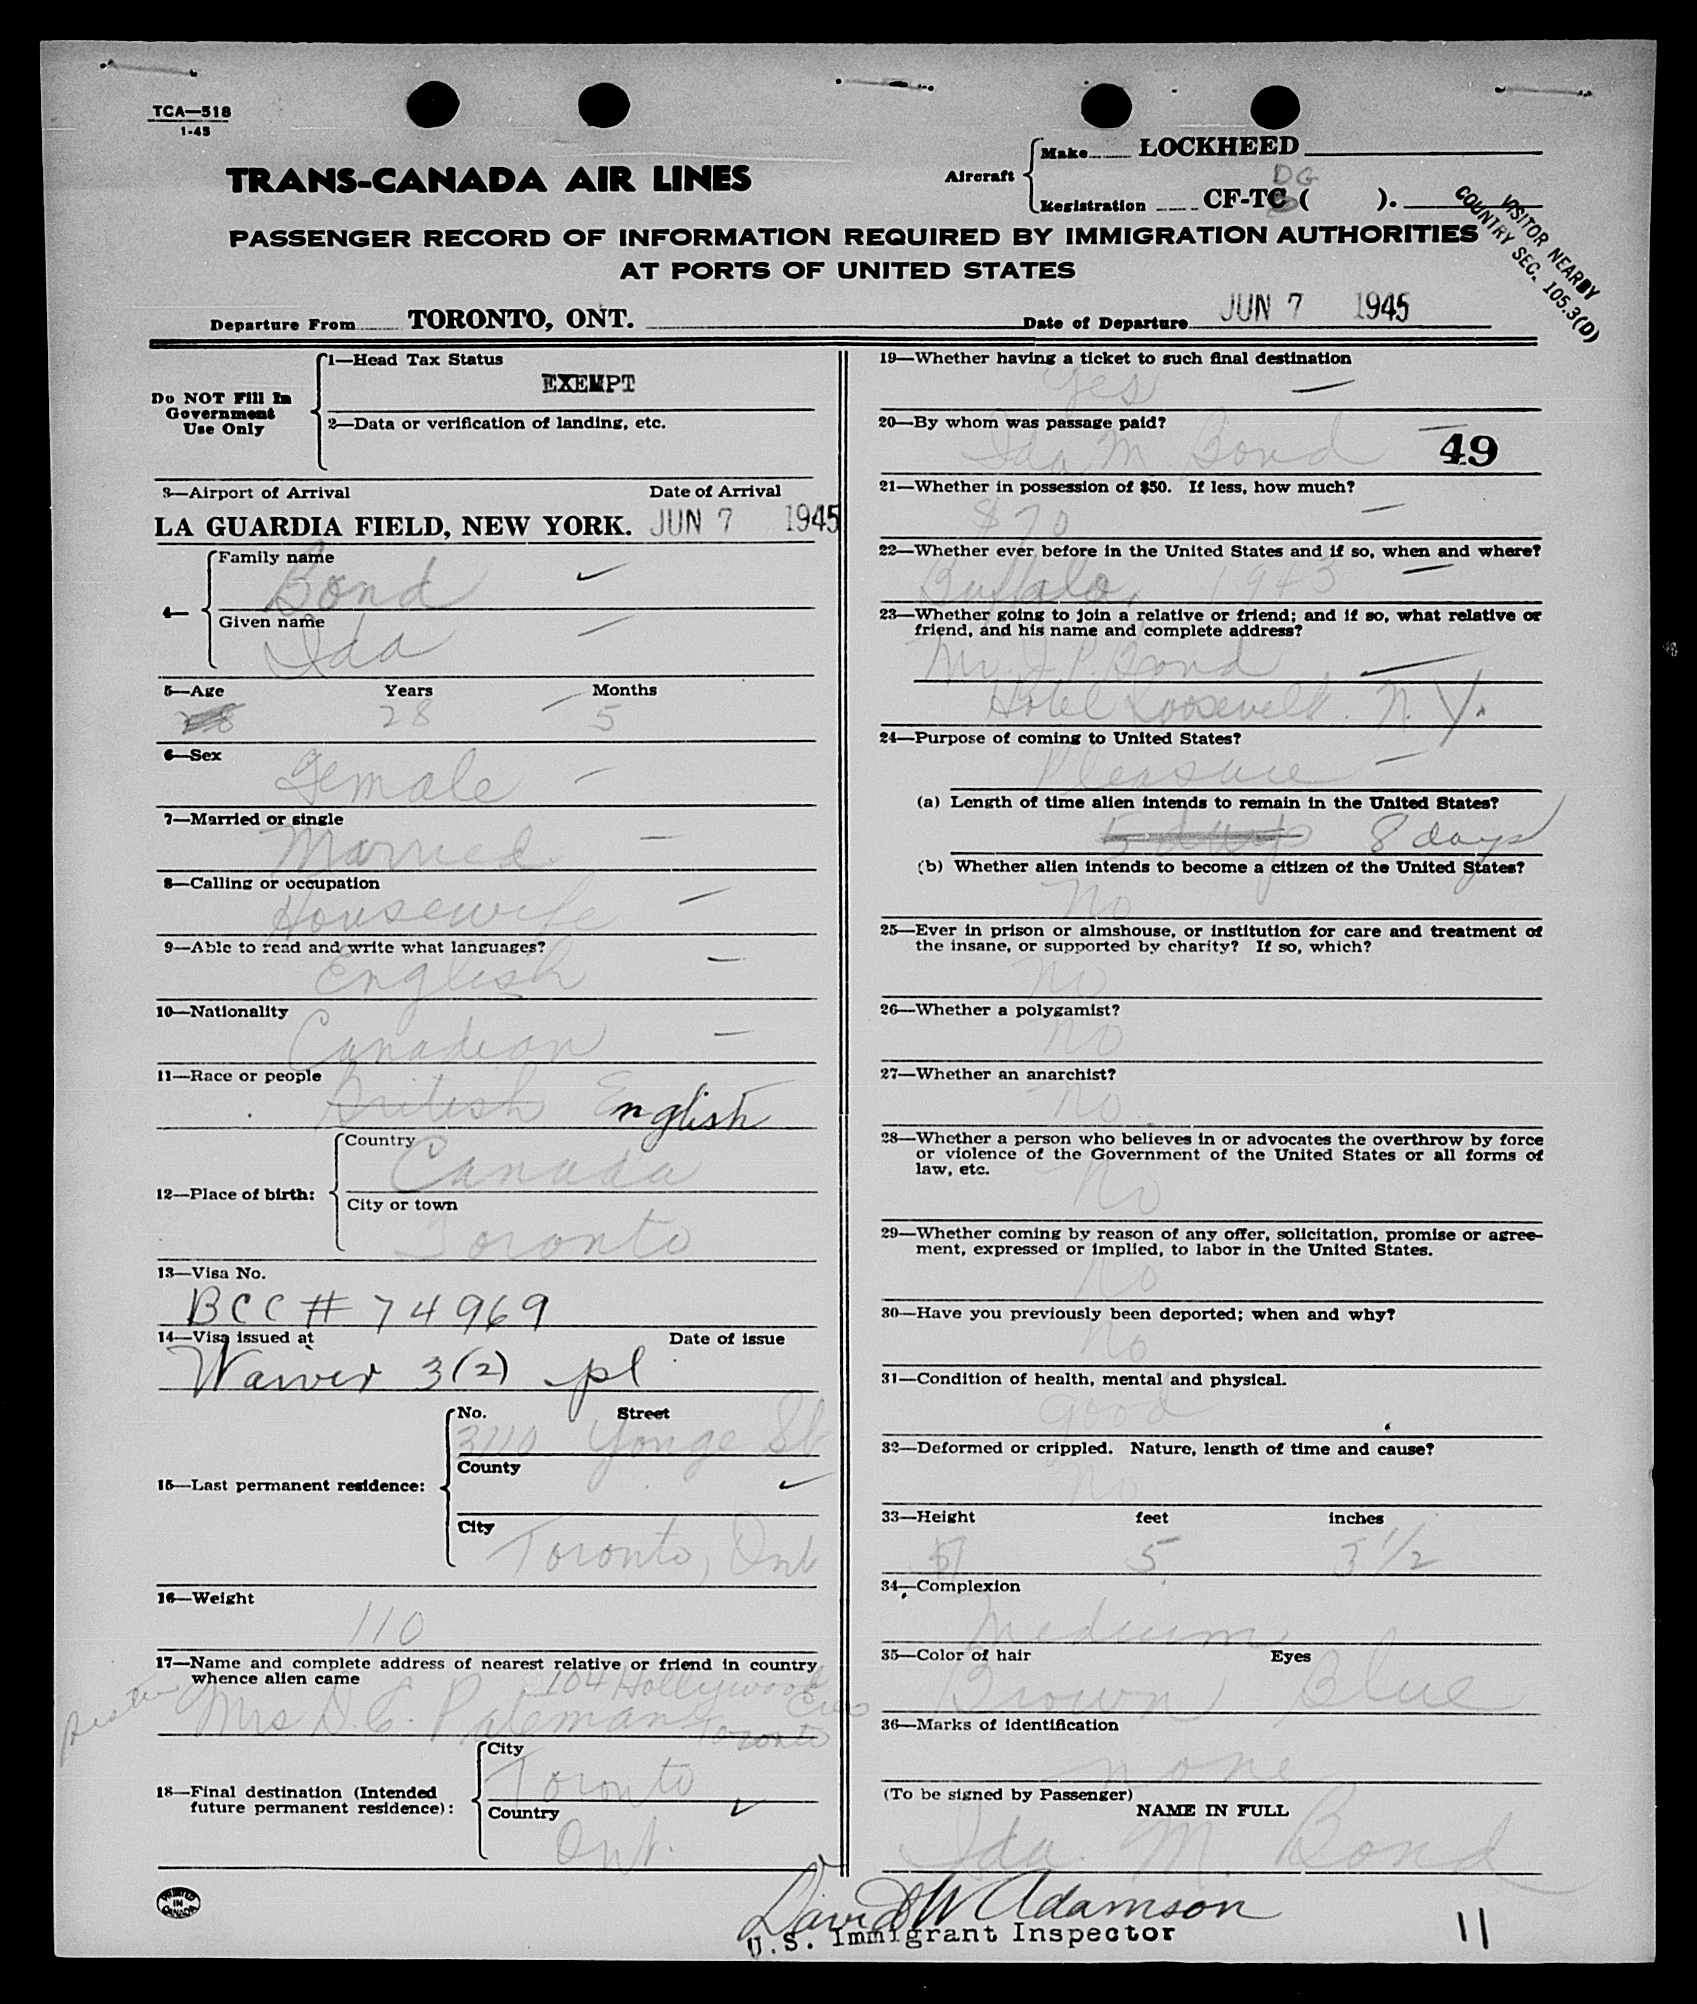 TCA—518
1-45
TRANS-CANADA AIR LINES
Aircraft
Make LOCKHEED
DG
Registration CF-TC ( ).
VISITOR NEARBY
COUNTRY SEC. 105.3(D)
PASSENGER RECORD OF INFORMATION REQUIRED BY IMMIGRATION AUTHORITIES
AT PORTS OF UNITED STATES
Departure From TORONTO, ONT. Date of Departure JUN 7 1945
Do NOT Fill In
Government
Use Only
1—Head Tax Status
EXEMPT
2—Data or verification of landing, etc.
3—Airport of Arrival Date of Arrival
LA GUARDIA FIELD, NEW YORK. JUN 7 1945
4—
Family name
Bond
Given name
Ida
5—Age Years Months
28 28 5
6—Sex
Female
7—Married or single
Married
8—Calling or occupation
Housewife
9—Able to read and write what languages?
English
10—Nationality
Canadian
11—Race or people
British English
12—Place of birth:
Country
Canada
City or town
Toronto
13—Visa No.
BCC # 74969
14—Visa issued at Date of issue
Waiver 3(2) pl
15—Last permanent residence:
No. Street
3110 Yonge St
County
City
Toronto, Ont
16—Weight
110
17—Name and complete address of nearest relative or friend in country
whence alien came
104 Hollywood
Cres
Mrs D. C. Pateman Toronto
18—Final destination (Intended
future permanent residence):
City
Toronto
Country
Ont.
PRINTED
IN
CANADA
19—Whether having a ticket to such final destination
Yes
20—By whom was passage paid?
Ida M Bond
49
21—Whether in possession of $50. If less, how much?
$70
22—Whether ever before in the United States and if so, when and where?
Buffalo, 1943
23—Whether going to join a relative or friend; and if so, what relative or
friend, and his name and complete address?
Mr J P. Bond
Hotel Roosevelt. N. Y.
24—Purpose of coming to United States?
Pleasure
(a) Length of time alien intends to remain in the United States?
5 days 8 days
(b) Whether alien intends to become a citizen of the United States?
No
25—Ever in prison or almshouse, or institution for care and treatment of
the insane, or supported by charity? If so, which?
No
26—Whether a polygamist?
No
27—Whether an anarchist?
No.
28—Whether a person who believes in or advocates the overthrow by force
or violence of the Government of the United States or all forms of
law, etc.
No
29—Whether coming by reason of any offer, solicitation, promise or agree-
ment, expressed or implied, to labor in the United States.
No
30—Have you previously been deported; when and why?
No
31—Condition of health, mental and physical.
good
32—Deformed or crippled. Nature, length of time and cause?
No
33—Height feet inches
5 3 1/2
34—Complexion
Medium
35—Color of hair Eyes
Brown Blue
36—Marks of identification
none
(To be signed by Passenger)
NAME IN FULL
Ida M. Bond
David W Adamson
U.S. Immigrant Inspector
11